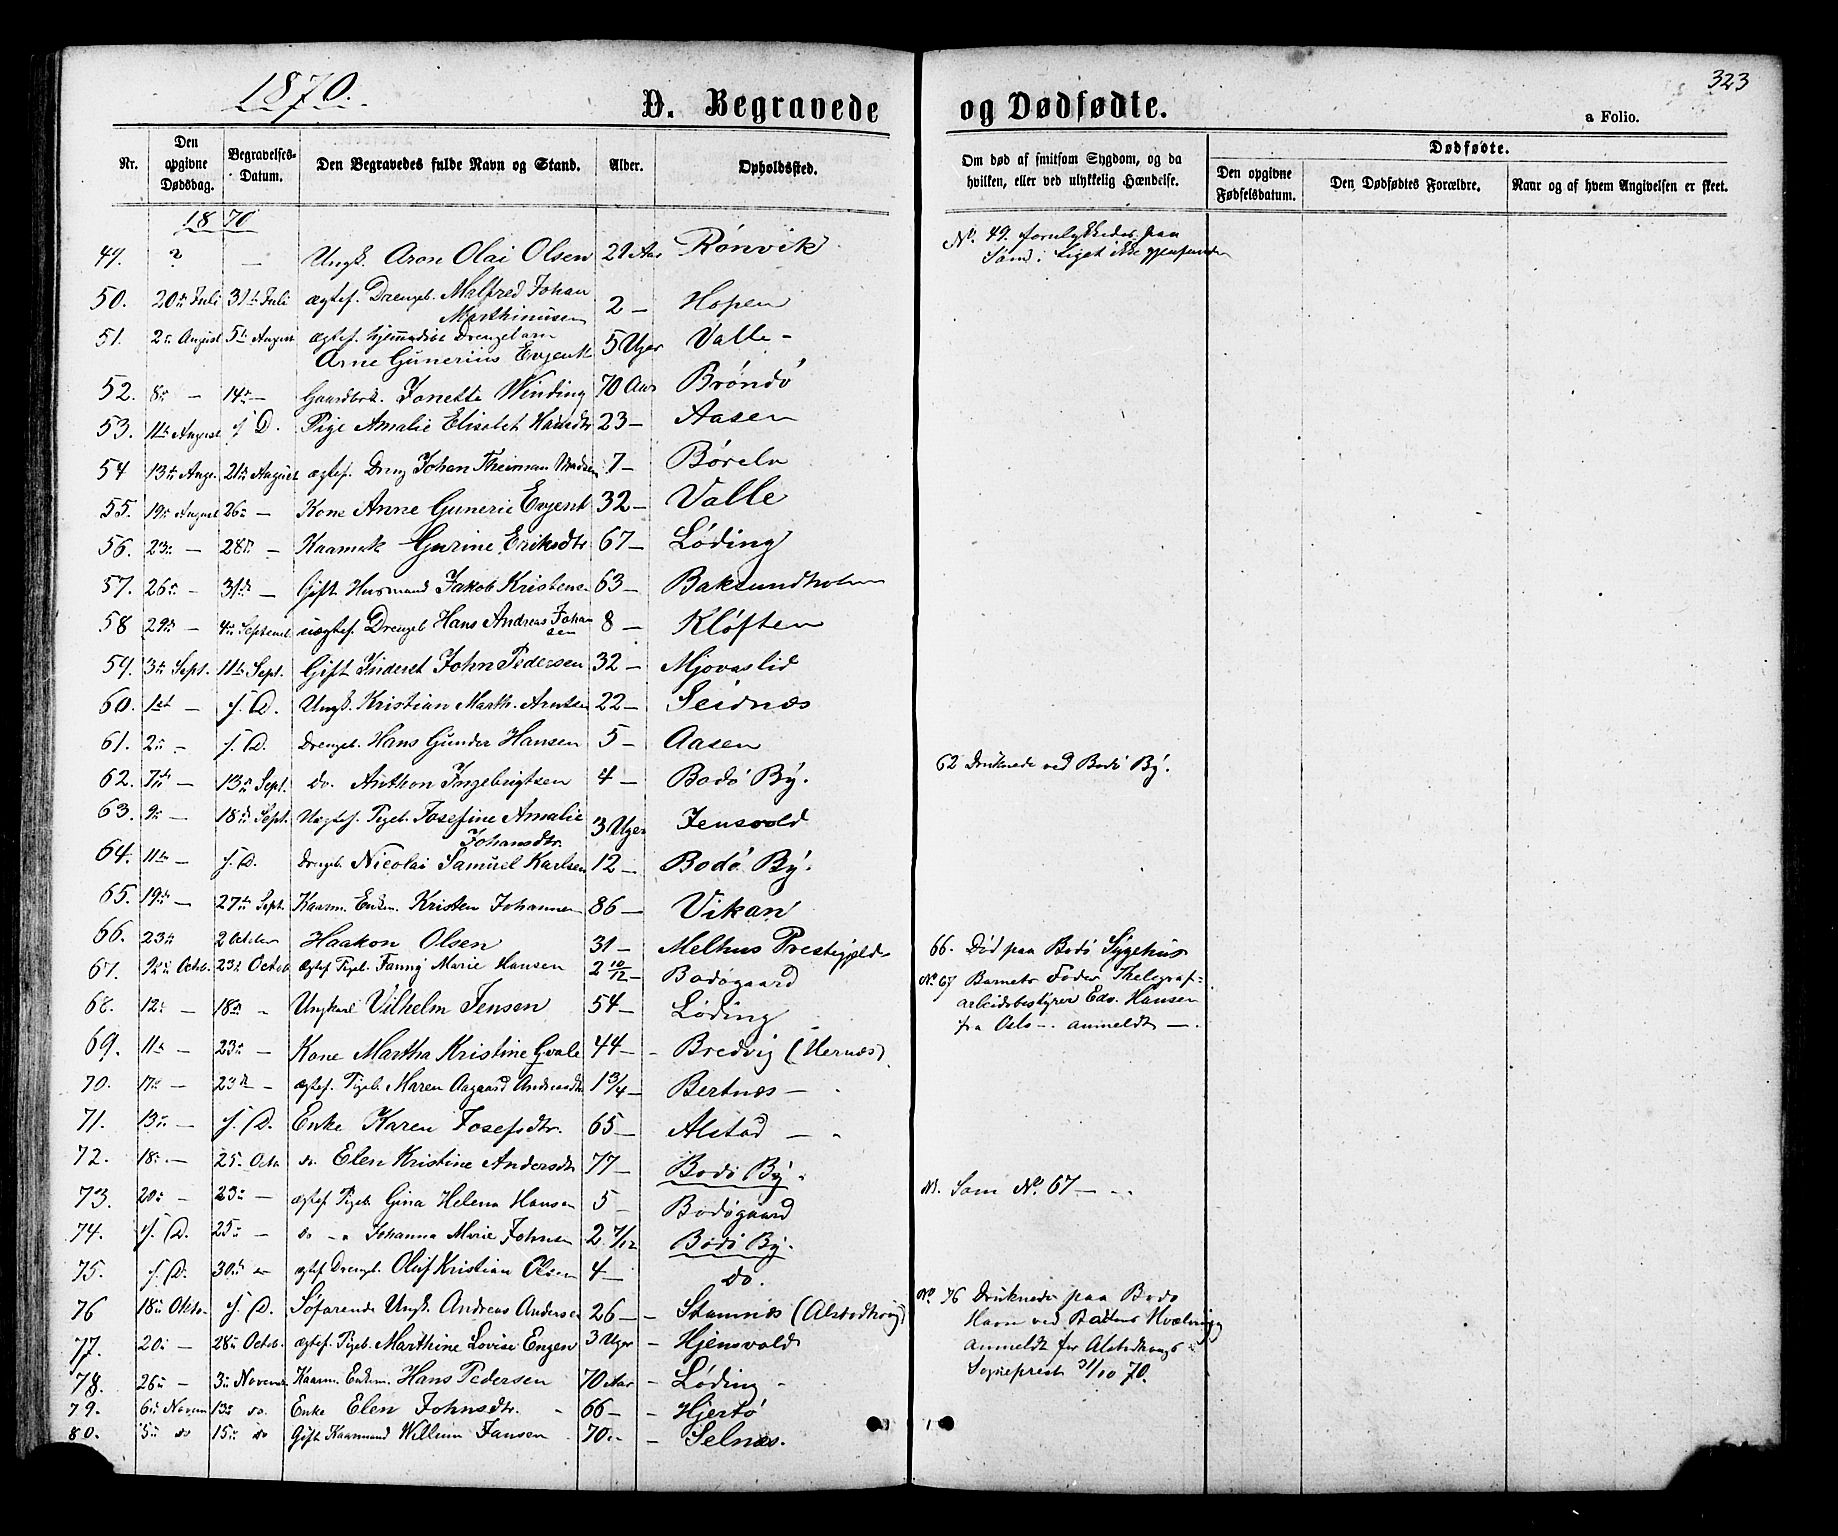 1870.
D. Begravede og Dødfødte.
323
a Folio.
Nr.
Den opgivne Dødsdag.
Begravelses-Datum.
Den Begravedes fulde Navn og Stand.
Alder.
Opholdssted.
Om død af smitsom Sygdom, og da hvilken, eller ved ulykkelig Hændelse.
Dødfødte.
Den opgivne Fødselsdatum.
Den Dødfødtes Forældre.
Naar og af hvem Angivelsen er skeet.
1870
49. ? — Ungk. Aron Olai Olsen 29 Aar Rønvik No. 49. forulykkedes paa
Søen; Liget ikke gjenfunden
50. 20de Juli 31te Juli ægtef. Drengeb. Malfred Johan
Marthinusen 2 — Hopen
51. 2den August 5te August ægtef. Drengebarn
Arne Gunerius Evjenth 5 Uger Valle -
52. 8de — 14de — Gaardbrk. Jonette Winding 70 Aar Brøndø
53. 11te August s. D. Pige Amalie Elisabet Hansdtr 23 — Aasen
54 13de Aug. 21de August ægtef. Dreng Johan Madsen 7 — Børelv
55. 19de August 26de — Kone Anne Gunerie Evjenth 32 — Valle
56. 23de — 28de — Kaarmek Gurine Eriksdtr 67 — Løding
57. 26de - 31te — Gift Husmand Jakob Kristense 63 — Baksundholm
58 29de — 4de Septembr uægtef. Drengeb Hans Andreas Johan
sen 8 — Kløften
59. 3de Sept. 11te Sept. Gift Inderst John Pedersen 32 — Mjovaslid
60. 1ste — s. D. Ungk. Kristian Marth. Arntsen 22 — Seidnæs
61. 2de - s. D. Drengeb. Hans Gunder Hansen 5 — Aasen
62. 7de — 13de Sept. do. Anthon Ingebrigtsen 4 — Bodø By. 62 Druknede ved Bodø By.
63. 9de — 18de Sept. Uægtef. Pigeb. Josefine Amalie
Johansdtr. 3 Uger Jensvold
64. 11te — s. D. Drengeb. Nicolai Samuel Karlsen 12 — Bodø By.
65. 19de — 27de Sept. Kaarm. Enkem. Kristen Johannsen 86 — Vikan
66. 23de 2 October Haakon Olsen 31 — Melhus Prestegjæld 66. Død paa Bodø Sygehus
67. 9de Octob. 23de Octob. ægtef Pigeb. Fanny Marie Hansen 2 10/12 — Bodøgaard No. 67 Barnets Fader Thelegraf-
arbeidsbestyrer Edv. Hansen
fra Oslo —. anmeldt —.
68. 12te - 18de - Ungkarl Vilhelm Jensen 54 — Løding
69. 11te — 23de — Kone Martha Kristine Hvale 44 — Bredvig (Hernæs)
70. 17de — 23de — ægtef. Pigeb. Maren Aagaard Andreasdtr 1 3/4 — Bertnæs —
71. 13de - s. D. Enke Karen Josefsdtr. 65 — Alstad —
72. 18de — 25de Octo do Elen Kristine Andersdtr 77 — Bodø By.
73. 20de - 23de — ægtef Pigeb. Gina Helena Hansen 5 - Bodøgaard No. Som No. 67 —
74. s. D. 25de - do - Johanna Marie Johnsen 2 7/12 Bodø By.
75. s. D. 30de — ægtef Drengeb. Oluf Kristian Olsen 4 — do.
76 18de Octo. s. D. Søfarende Ungk. Andreas Anderse 26 — Stamnæs (Alstadhoug) No. 76 Druknede paa Bodø
Havn ved Baadens Kvælving
anmeldt for Alstadhougs
Sogneprest 31/10 70.
77. 20de — 28de Octob. ægtef. Pigeb. Marthine Lovise Engen 3 Uger - Hjensvold
78. 26de — 3de Novemb Kaarm. Enkem. Hans Pedersen 70 Aar - Løding -
79. 6te Novem 13de do. Enke Elen Johnsdtr. 66 — Hjertø
80. 5te do 15de do Gift Kaarmand Willum Jansen 70 — Selnæs.